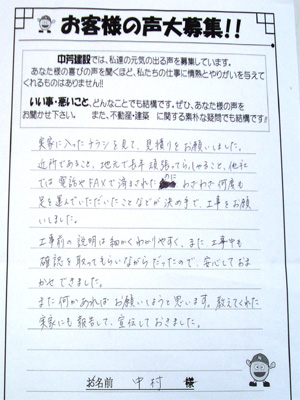 お客様の声大募集!!
中芳建設では、私達の元気の出る声を募集しています。
あなた様の喜びの声を聞くほど、私たちの仕事に情熱とやりがいを与えて
くれるものはありません!!
いい事・悪いこと、どんなことでも結構です。ぜひ、あなた様の声を
お聞かせ下さい。 また、不動産・建築 に関する素朴な疑問でも結構です!!
実家に入ったチラシを見て、見積りをお願いしました。
近所であること、地元で長年頑張ってらっしゃること、他社
では電話やFAXで済まされたのに わざわざ何度も
足を運んでいただいたことなどが決め手で、工事をお願
いしました。
工事前の説明は細かくわかりやすく、また工事中も
確認を取ってもらいながらだったので、安心しておま
かせできました。
また何かあればお願いしようと思います。教えてくれた
実家にも報告して、宣伝しておきました。
お名前 中村 様